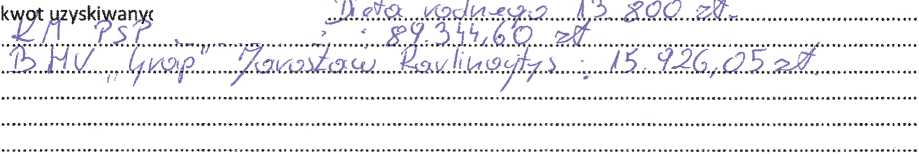 kwot uzyskiwany
Dieta radnego 13 800 zł.
KM PSP : 89.344,60 zł
BHU "Grap" Jarosław : 15.926,05 zł.